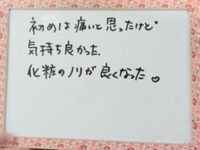 初めは痛いと思ったけど
気持ち良かった.
化粧のノリが良くなった♡